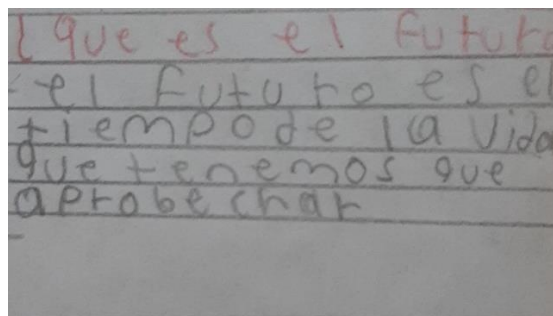 ¿que es el futuro
el futuro es el
tiempo de la vida
que tenemos que
aprobechar